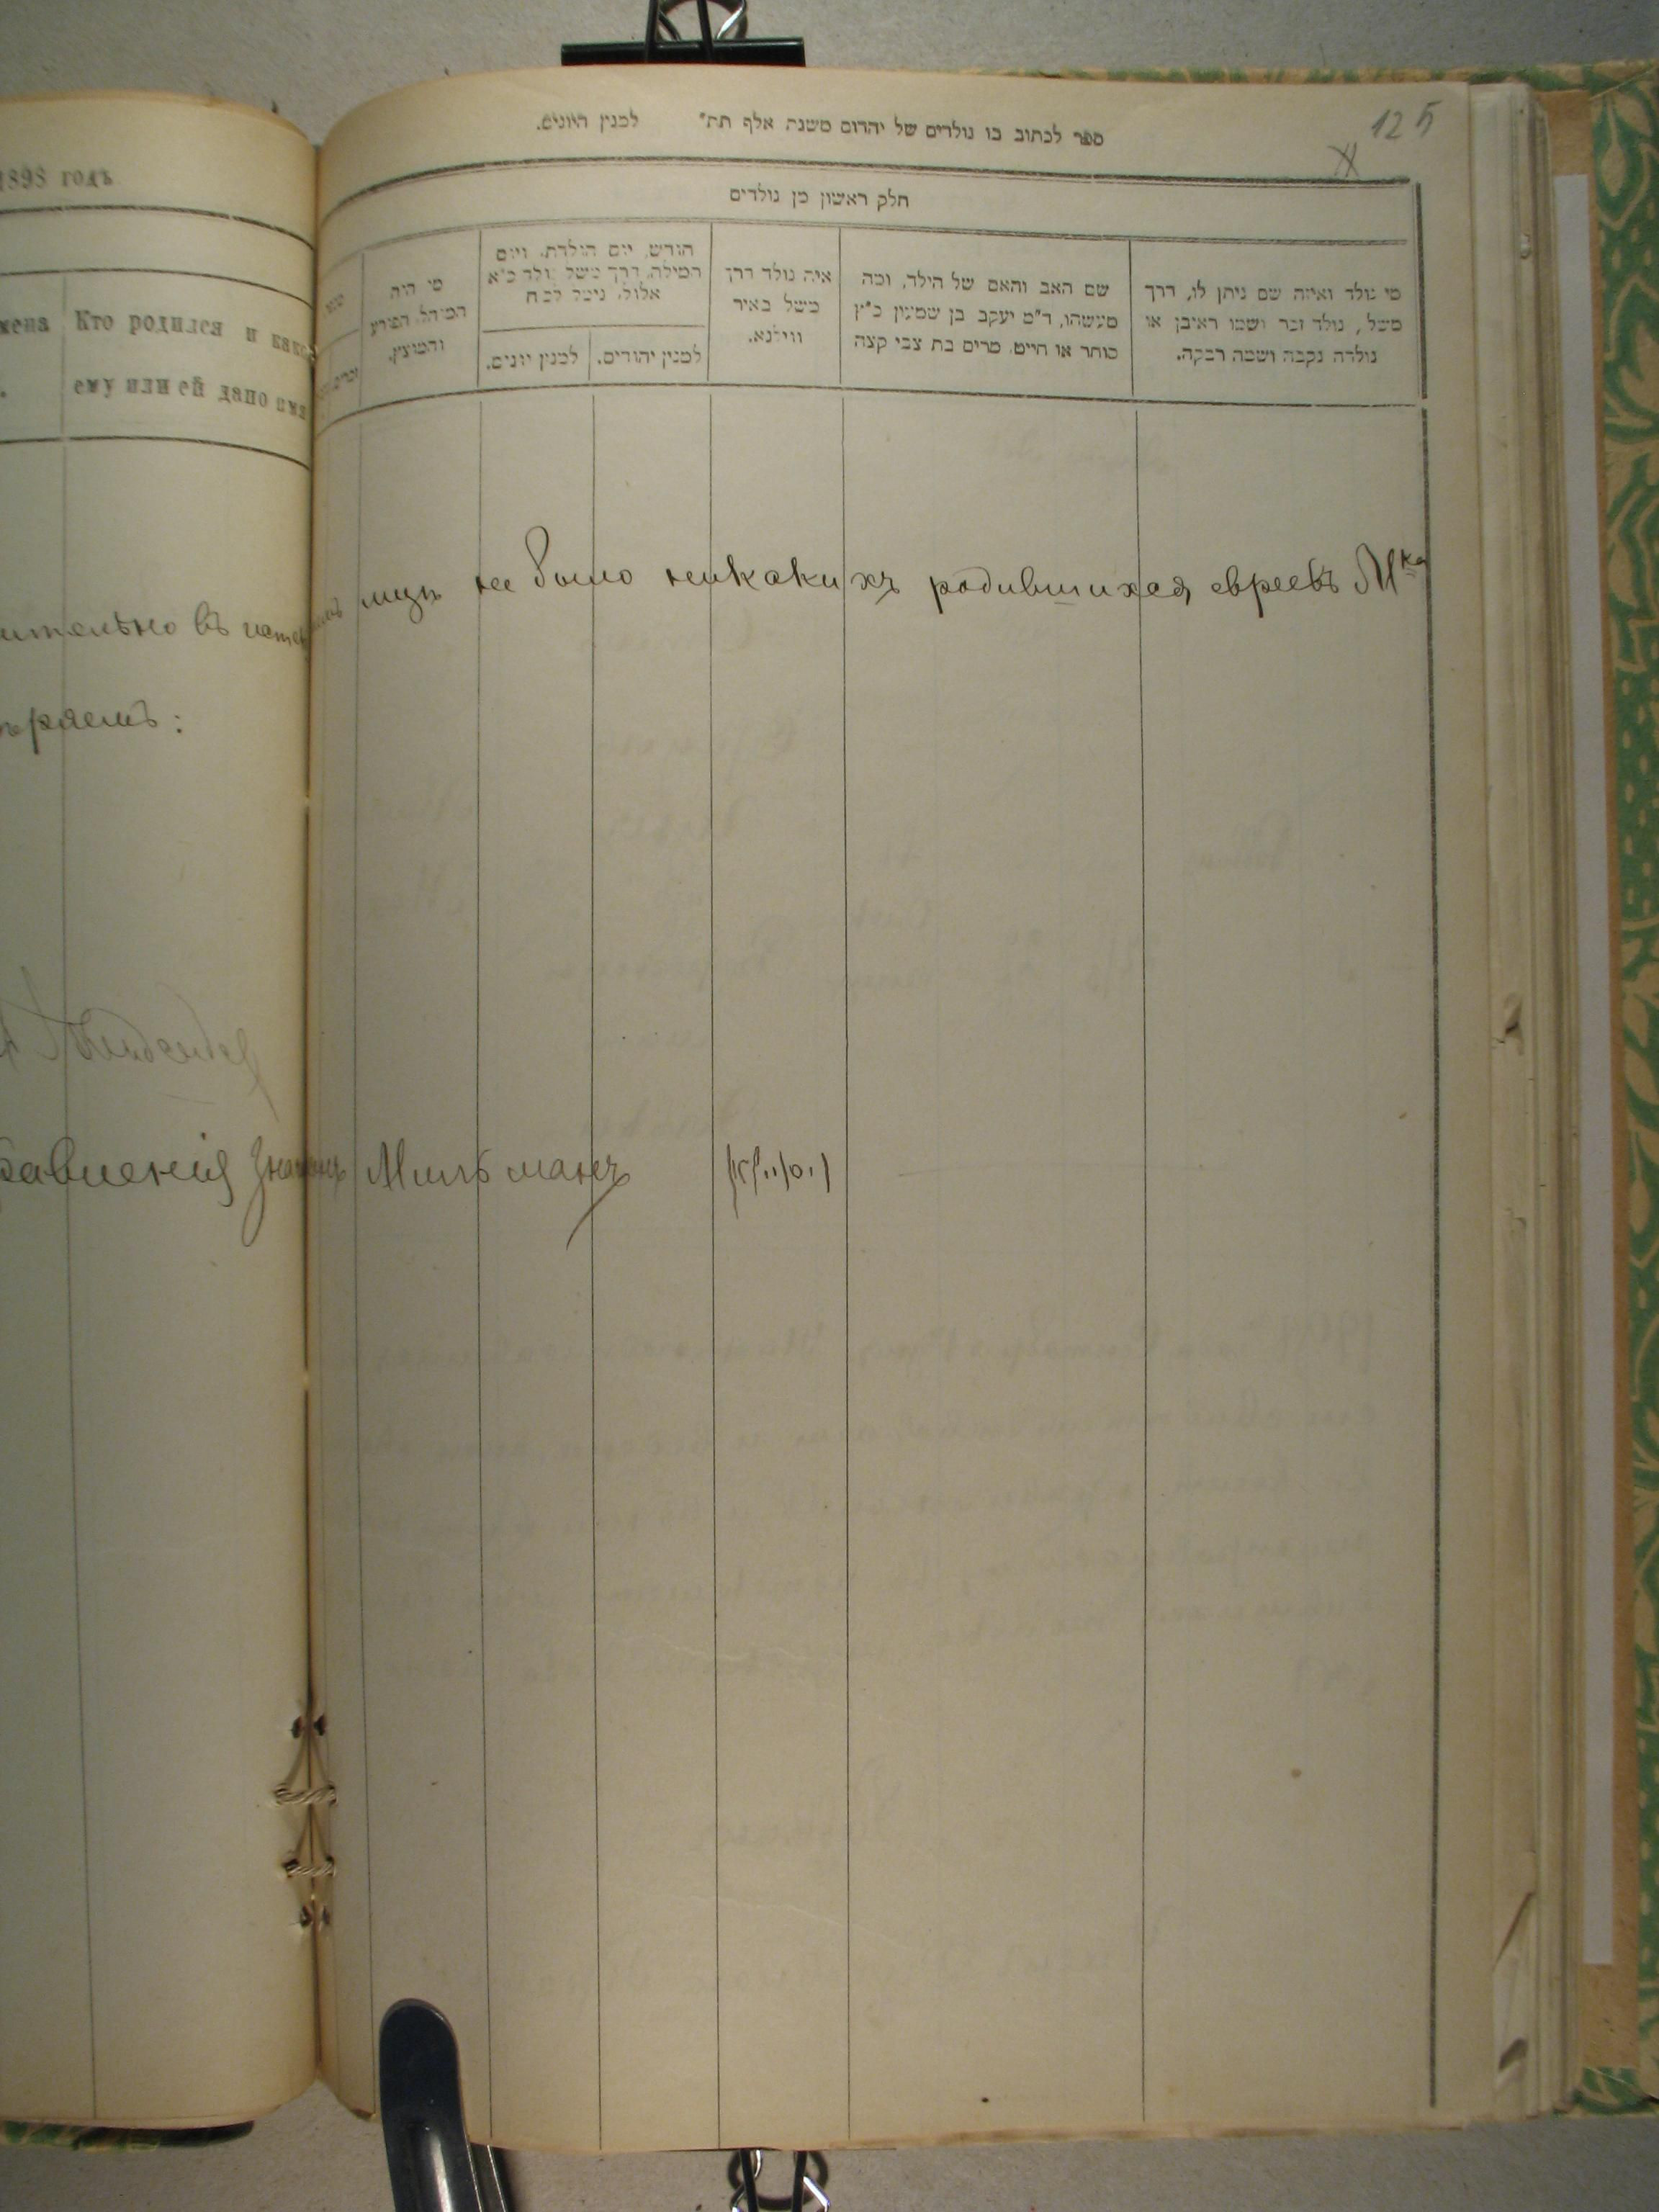 125
ספר לכתוב בו נולדים של יהדום משנת אלף תת״ למנין היונים.
חלק ראשון מן נולדים
מי נולד ואיזה שם ניתן לו, דרך
משל, נולד זכר ושמו ראיבן או
נולדה נקבה ושמה רבקה.
שם האב והאם של הילד, ומה
מעשהו, ד״מ יעקב בן שמעין כ״ץ
סוחר או חייט. מרים בת צבי קצב
איה נולד דרך
משל באיר
ווילנא.
חודש, יום הולדת, ויום
המילה, דרך משל נולד כ״א
אלול, נימל לכ״ח
למנין יהודים.
למנין יונים.
מי היה
המוהל הפורע
והמוצץ.
1898 годъ
жена
Кто родился и како
ему или ей дано имя
ительно въ
ѣряемъ:
мцѣ не было никакихъ родившихся евреевъ М-ка
равленія Мильманъ